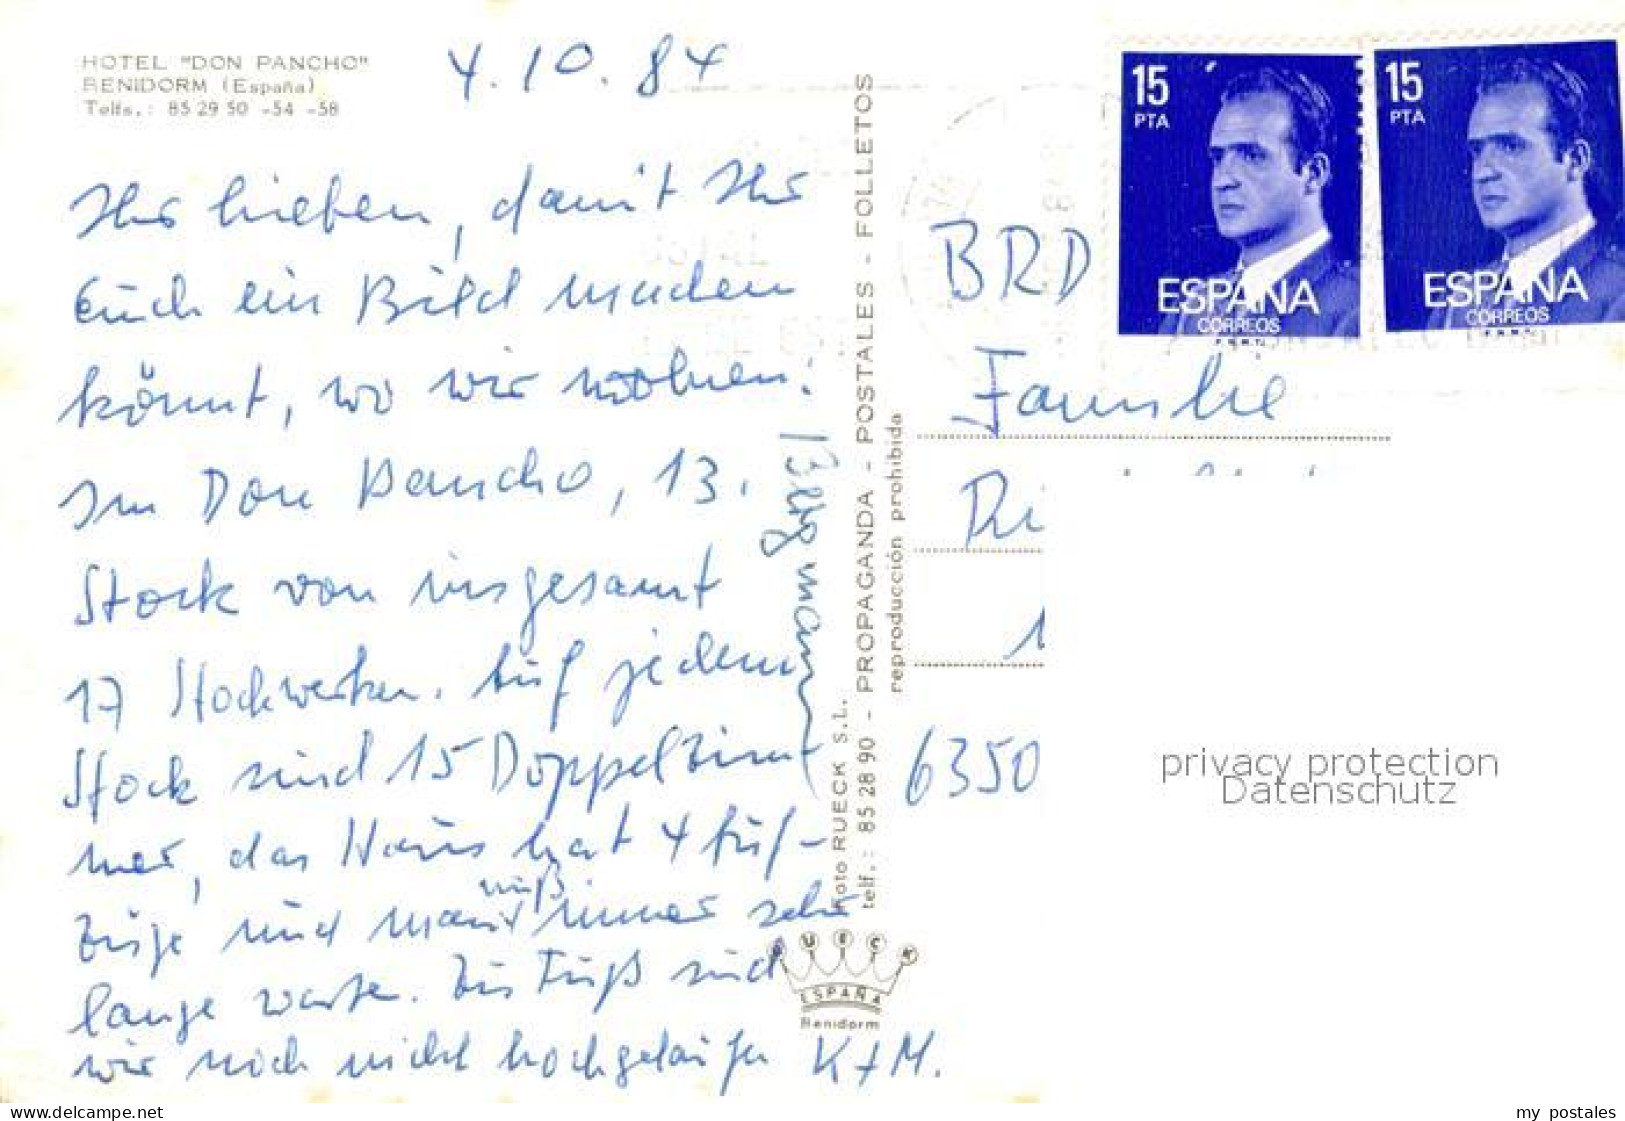 HOTEL "DON PANCHO"
BENIDORM (España)
Telfs.: 85 29 50 -54 -58
4.10.84
Ihr lieben, damit Ihr
Euch ein Bild machen
könnt, wo wir wohnen:
Im Don Pancho, 13.
Stock von insgesamt
17 Stockwerken. Auf jedem
Stock sind 15 Doppelzim
mer, das Haus hat 4 Auf-
züge und man muß immer sehr
lange warten. Zu Fuß sind
wir noch nicht hochgelaufen K+M.
PROPAGANDA - POSTALES - FOLLETOS
reproducción prohibida
Foto RUECK S.L.
telf.: 85 28 90
RUECK
ESPAÑA
Benidorm
15
PTA
ESPAÑA
CORREOS
15
PTA
ESPAÑA
CORREOS
BRD
Familie
Ri
1
6350
privacy protection
Datenschutz
delcampe.net
my_postales